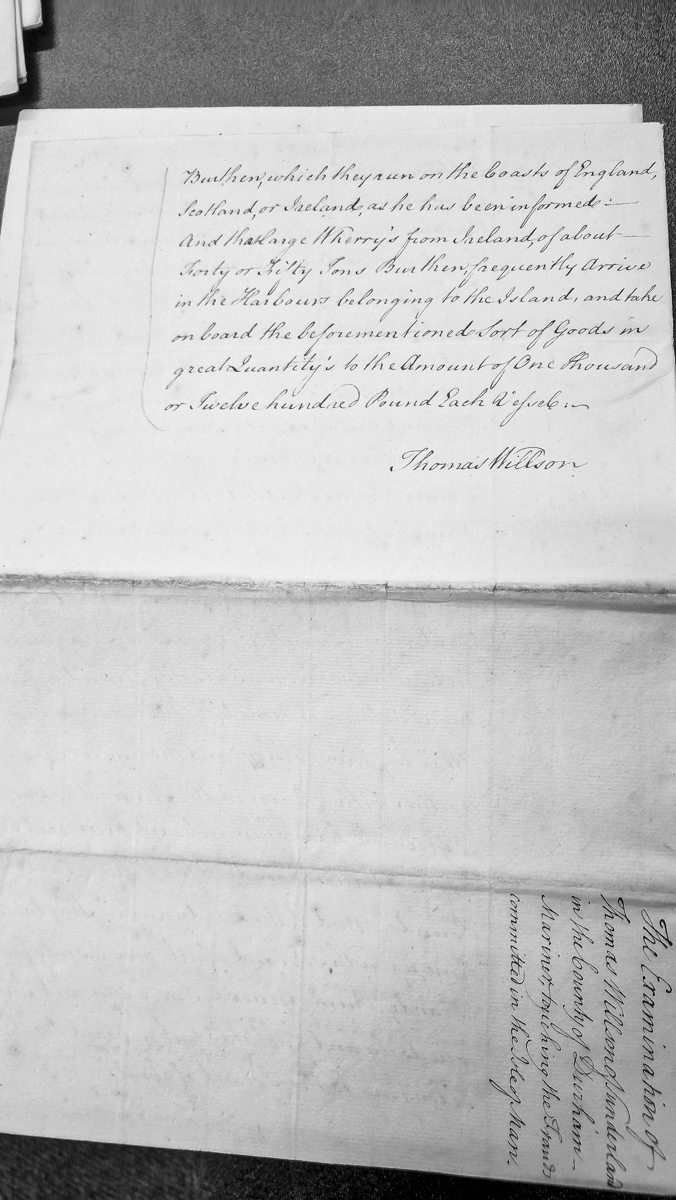 Burthen, which they run on the Coasts of England,
Scotland, or Ireland, as he has been informed :—
And that large Wherry's from Ireland, of about —
Forty or Fifty Tons Burthen, frequently Arrive
in the Harbours belonging to the Island, and take
on board the beforementioned Sort of Goods in
great Quantity's to the Amount of One Thousand
or Twelve hundred Pound Each Vessel :—
Thomas Willson
The Examination of
Thomas Willson of Sunderland
in the County of Durham —
Mariner, touching the Frauds
committed in the Isle of Man.